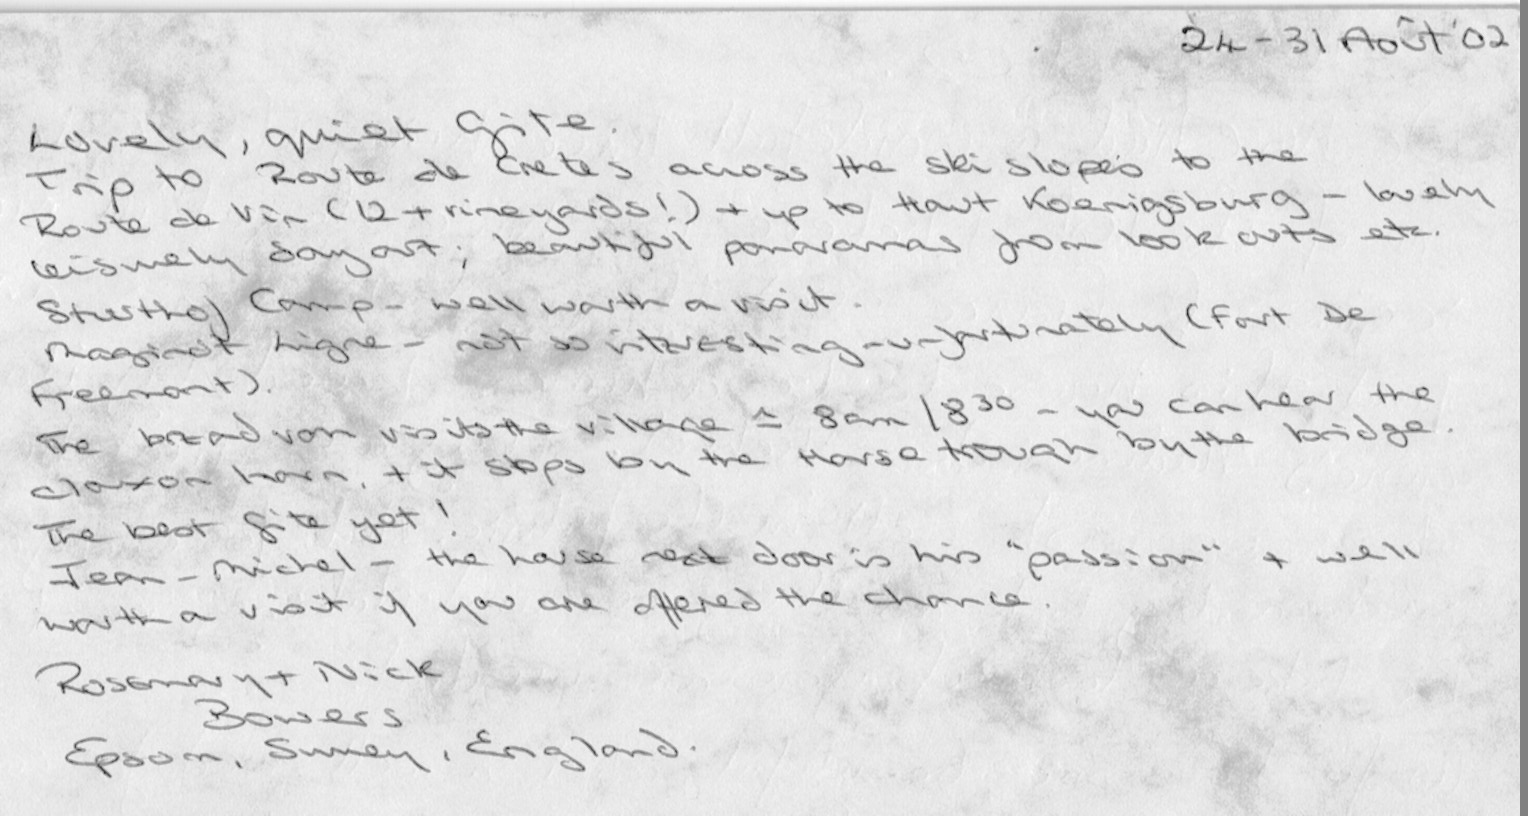 24-31 Août '02
Lovely, quiet Gite.
Trip to Route de Cretes across the ski slopes to the
Route de Vin (12+ vineyards!) + up to Haut Koenigsburg - lovely
leisurely day out; beautiful panoramas from look outs etc.
Struthof Camp - well worth a visit.
Maginot Ligne - not so interesting - unfortunately (Fort De
Freemont).
The bread van visits the village ≏ 8am / 8³⁰ - you can hear the
claxon horn, + it stops by the Horse trough by the bridge.
The best Gite yet!
Jean-Michel - the house next door is his "passion" + well
worth a visit if you are offered the chance.
Rosemary + Nick
Bowers
Epsom, Surrey, England.